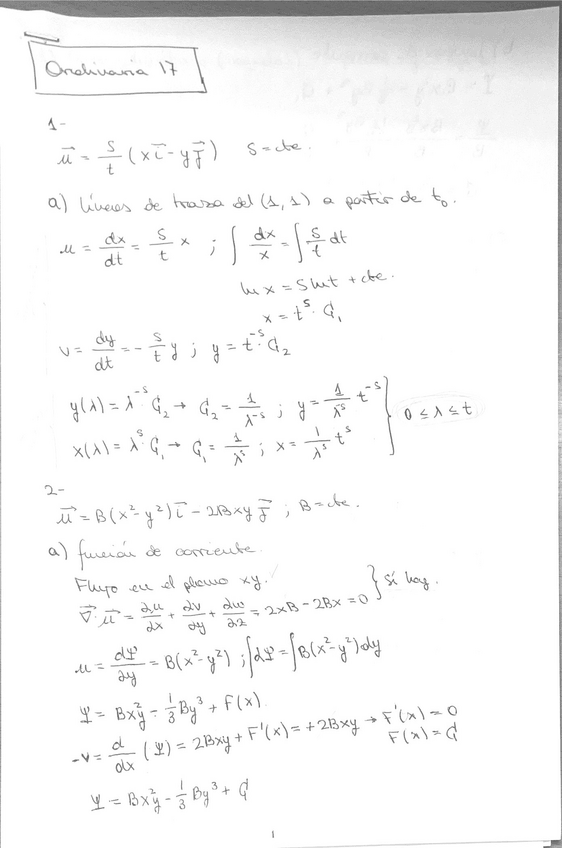 Ordinaria 17
1-
u⃗ = S/t (x i⃗ - y j⃗) S = cte.
a) líneas de traza del (1,1) a partir de t₀.
u = dx/dt = S/t x ; ∫ dx/x = ∫ S/t dt
ln x = S ln t + cte.
x = t^S · C₁
v = dy/dt = - S/t y ; y = t^-S · C₂
y(λ) = λ^-S C₂ → C₂ = 1/λ^-S ; y = 1/λ^S t^-S } 0 ≤ λ ≤ t
x(λ) = λ^S · C₁ → C₁ = 1/λ^S ; x = 1/λ^S t^S
2-
u⃗ = B(x² - y²) i⃗ - 2Bxy j⃗ ; B = cte.
a) función de corriente.
Flujo en el plano xy. } Sí hay.
∇⃗ · u⃗ = ∂u/∂x + ∂v/∂y + ∂w/∂z = 2xB - 2Bx = 0
u = dΨ/∂y = B(x² - y²) ; ∫dΨ = ∫B(x² - y²)dy
Ψ = Bx²y - 1/3 By³ + F(x)
-v = d/dx (Ψ) = 2Bxy + F'(x) = +2Bxy → F'(x) = 0
F(x) = C
Ψ = Bx²y - 1/3 By³ + C
1